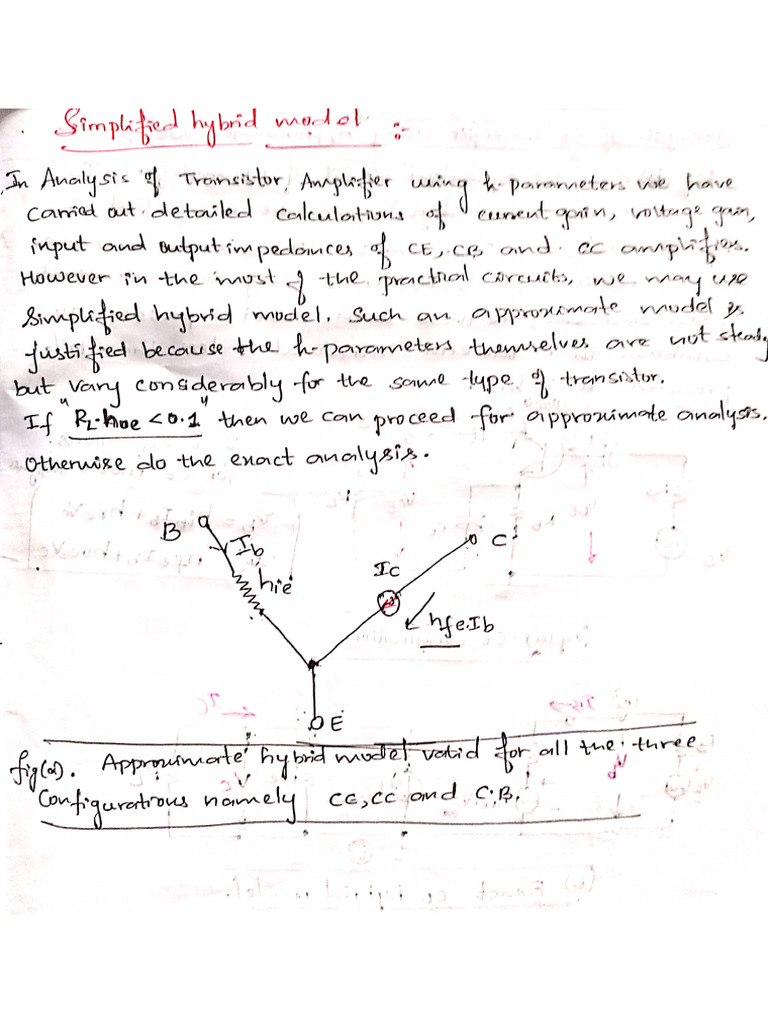 Simplified hybrid model :-
In Analysis of Transistor, Amplifier using h-parameters we have
carried out detailed calculations of current gain, voltage gain,
input and output impedances of CE, CB and CC amplifier.
However in the most of the practical circuits, we may use
simplified hybrid model. Such an approximate model is
justified because the h-parameters themselves are not steady
but vary considerably for the same type of transistor.
If "RL.hoe < 0.1" then we can proceed for approximate analysis.
Otherwise do the exact analysis.
B
Ib
hie
Ic
C
hfe.Ib
E
fig(a). Approximate hybrid model valid for all the three
Configurations namely CE, CC and C.B.